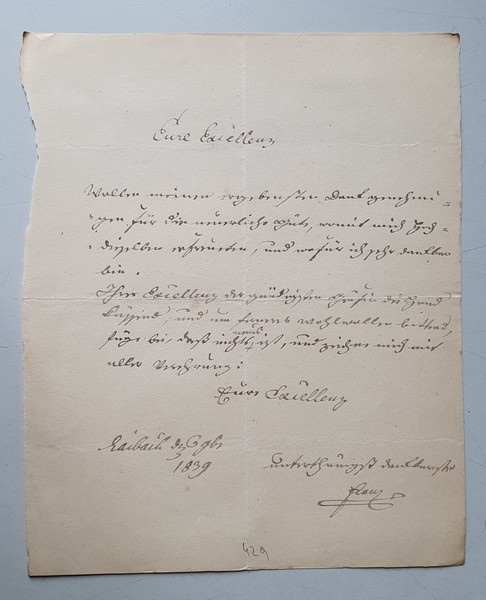 Eure Excellenz
Wollen meinen ergebensten Dank genehmi=
=gen für die neuerliche Güte, womit mich Hoch=
=dieselben erfreueten, und wofür ich sehr dankbar
bin.
Ihrer Excellenz der gnädigsten Gräfin die Hand
küssend, und um ferners Wohlwollen bittend,
füge bei, daß nichts neues ist, und zeichne mich mit
aller Verehrung:
Eurer Excellenz
Laibach 9br
1839
unterthänigst dankbarster
Franz
429